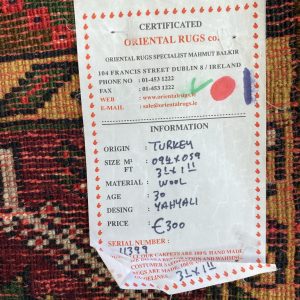 CERTIFICATED
ORIENTAL RUGS co.
ORIENTAL RUGS SPECIALIST MAHMUT BALKIR
104 FRANCIS STREET DUBLIN 8 / IRELAND
PHONE NO : 01-453 1222
FAX : 01-453 1222
WEB : www.orientalrugs.ie
E-MAIL : sale@orientalrugs.ie
INFORMATION
ORIGIN : TURKEY
SIZE M² : 094 x 059
FT : 3'1 x 1'11
MATERIAL : WOOL
AGE : 30
DESING : YAHYALI
PRICE : €300
SERIAL NUMBER :
11399
OUR CARPETS ARE 100% HAND MADE
3'1 x 1'11